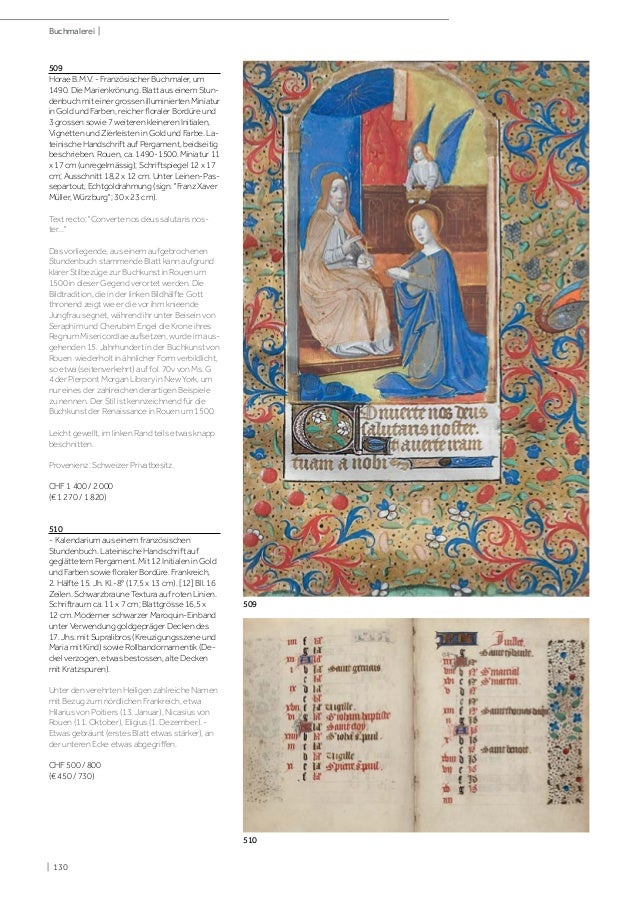 Buchmalerei |
509
Horae B.M.V. - Französischer Buchmaler, um
1490. Die Marienkrönung. Blatt aus einem Stun-
denbuch mit einer grossen illuminierten Miniatur
in Gold und Farben, reicher floraler Bordüre und
3 grossen sowie 7 weiteren kleineren Initialen,
Vignetten und Zierleisten in Gold und Farbe. La-
teinische Handschrift auf Pergament, beidseitig
beschrieben. Rouen, ca. 1490-1500. Miniatur 11
x 17 cm (unregelmässig); Schriftspiegel 12 x 17
cm; Ausschnitt 18,2 x 12 cm. Unter Leinen-Pas-
separtout, Echtgoldrahmung (sign. "Franz Xaver
Müller, Würzburg"; 30 x 23 cm).
Text recto: "Converte nos deus salutaris nos-
ter..."
Das vorliegende, aus einem aufgebrochenen
Stundenbuch stammende Blatt kann aufgrund
klarer Stilbezüge zur Buchkunst in Rouen um
1500 in dieser Gegend verortet werden. Die
Bildtradition, die in der linken Bildhälfte Gott
thronend zeigt wie er die vor ihm knieende
Jungfrau segnet, während ihr unter Beisein von
Seraphim und Cherubim Engel die Krone ihres
Regnum Misericordiae aufsetzen, wurde im aus-
gehenden 15. Jahrhundert in der Buchkunst von
Rouen wiederholt in ähnlicher Form verbildlicht,
so etwa (seitenverkehrt) auf fol. 70v von Ms. G
4 der Pierpont Morgan Library in New York, um
nur eines der zahlreichen derartigen Beispiele
zu nennen. Der Stil ist kennzeichnend für die
Buchkunst der Renaissance in Rouen um 1500.
Leicht gewellt, im linken Rand teils etwas knapp
beschnitten.
Provenienz: Schweizer Privatbesitz.
CHF 1 400 / 2 000
(€ 1 270 / 1 820)
510
- Kalendarium aus einem französischen
Stundenbuch. Lateinische Handschrift auf
geglättetem Pergament. Mit 12 Initialen in Gold
und Farben sowie floraler Bordüre. Frankreich,
2. Hälfte 15. Jh. Kl.-8° (17,5 x 13 cm). [12] Bll. 16
Zeilen. Schwarzbraune Textura auf roten Linien.
Schriftraum ca. 11 x 7 cm; Blattgrösse 16,5 x
12 cm. Moderner schwarzer Maroquin-Einband
unter Verwendung goldgepräger Decken des
17. Jhs. mit Supralibros (Kreuzigungsszene und
Maria mit Kind) sowie Rollbandornamentik (De-
ckel verzogen, etwas bestossen, alte Decken
mit Kratzspuren).
Unter den verehrten Heiligen zahlreiche Namen
mit Bezug zum nördlichen Frankreich, etwa
Hilarius von Poitiers (13. Januar), Nicasius von
Rouen (11. Oktober), Eligius (1. Dezember). -
Etwas gebräunt (erstes Blatt etwas stärker), an
der unteren Ecke etwas abgegriffen.
CHF 500 / 800
(€ 450 / 730)
Converte nos deus
salutaris noster.
Et averte iram
tuam a nobis
509
Saint gervais.
Vigille.
S iohan baptiste
Saint eloy.
S ioh. s. paul.
Vigille
S pierre s. paul.
Juillet.
S marcial
S martin.
Saint thomas
Saint benoit.
510
| 130